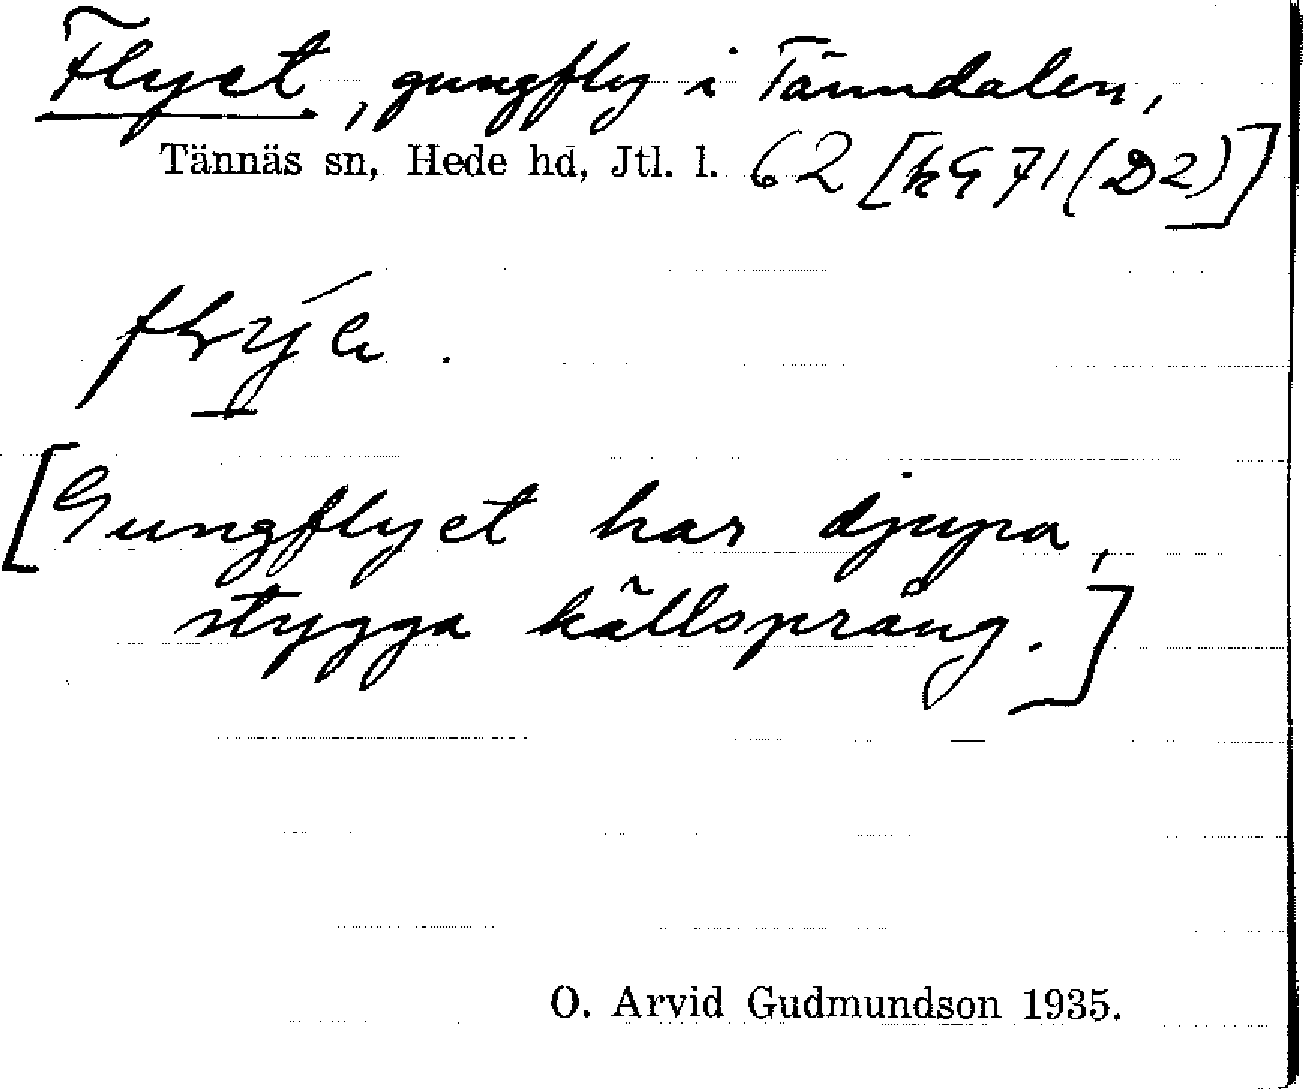 Flyet, gungfly i Tänndalen,
Tännäs sn, Hede hd, Jtl. l. 62 [kG 71 (D2)]
[Gungflyet har djupa,
stygga källsprång.]
O. Arvid Gudmundson 1935.